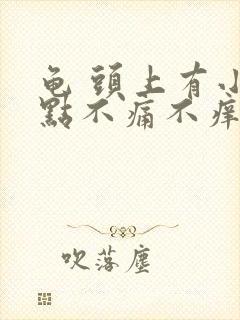 龟頭上有小
點不痛不痒
吹落塵